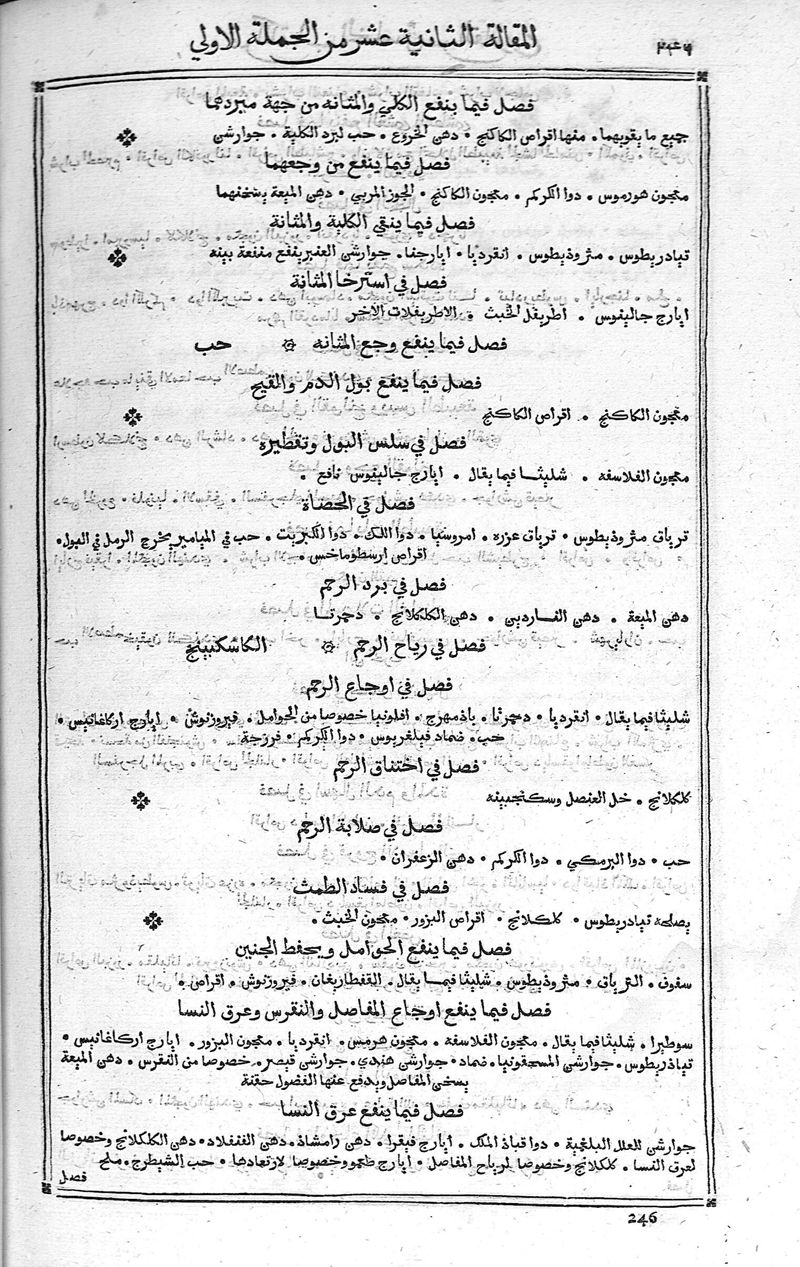 المقالة الثانية عشر من الجملة الاولي
٢٤٦
فصل فيما ينفع الكلي والمثانه من جهة مبردها
جميع ما يقويهما • منها اقراص الكاكنج • دهن الخروع • حب لبرد الكلية • جوارشن
فصل فيما ينفع من وجعهما
معجون هورموس • دوا الكركم • معجون الكاكنج • الجوز المربي • دهن الميعة يسخنهما
فصل فيما ينقي الكلية والمثانة
تيادريطوس • مثروذيطوس • انقرديا • ايارجفا • جوارشن العنبر ينفع منفعة بينه
فصل في استرخا المثانة
ايارج جالينوس • اطريفل الخبث • الاطريفلات الاخر
فصل فيما ينفع وجع المثانه حب
فصل فيما ينفع بول الدم والمقيح
معجون الكاكنج • اقراص الكاكنج
فصل في سلس البول وتقطيره
معجون الفلاسفه • شليثا فيما يقال • ايارج جالينوس نافع •
فصل في الحصاة
ترياق مثروذيطوس • ترياق عزره • امروسيا • دوا اللك • دوا الكبريت • حب في الميامير يخرج الرمل في البول •
اقراص ارسطوماخس •
فصل في برد الرحم
دهن الميعة • دهن الناردين • دهن الكلكلانج • دحمرثا
فصل في رياح الرحم الكاشكبينج
فصل في اوجاع الرحم
شليثا فيما يقال • انقرديا • دحمرثا • باذمهرج • افلونيا خصوصا من الحوامل • فيروزنوش • ايارج اركاغانيس •
حب • ضماد فيلغريوس • دوا الكركم • فرزجة
فصل في اختناق الرحم
كلكلانج • خل العنصل وسكنجبينه
فصل في صلابة الرحم
حب • دوا البرمكي • دوا الكركم • دهن الزعفران •
فصل في فساد الطمث
يصلحه تيادريطوس • كلكلانج • اقراص البزور • معجون الخبث •
فصل فيما ينفع الحوامل ويحفظ الجنين
سفوف • الترياق • مثروذيطوس • شليثا فيما يقال • القفطاريغان • فيروزنوش • اقراص •
فصل فيما ينفع اوجاع المفاصل والنقرس وعرق النسا
سوطيرا • شليثا فيما يقال • معجون الفلاسفه • معجون هرمس • انقرديا • معجون البزور • ايارج اركاغانيس •
تيادريطوس • جوارشن المسحقونيا • ضماد • جوارشن هندي • جوارشن قيصر • خصوصا من النقرس • دهن الميعة
يسخن المفاصل ويدفع عنها الفضول حقنة
فصل فيما ينفع عرق النسا
جوارشن للعلل البلغمية • دوا قباذ الملك • ايارج فيقرا • دهن رامشاذ • دهن القنفلاد • دهن الكلكلانج وخصوصا
لعرق النسا • كلكلانج وخصوصا لرياح المفاصل • ايارج وخصوصا لارتعادها • حب الشيطرج • ملح
فصل
246